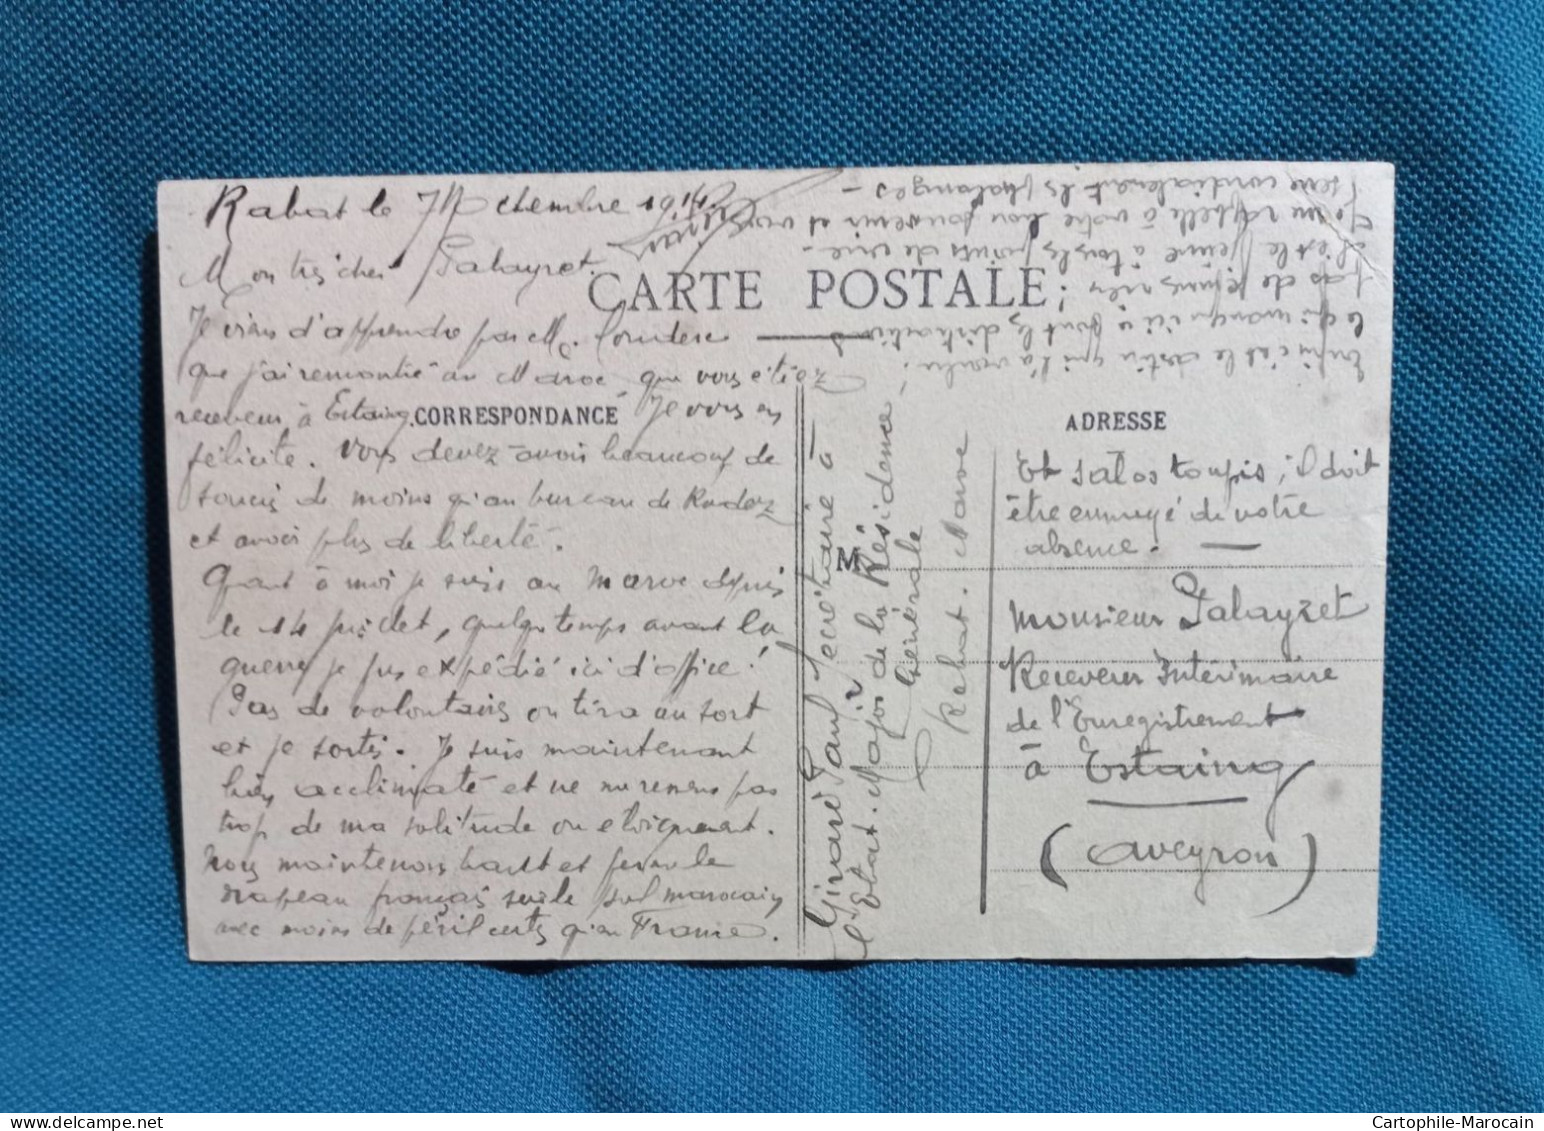 Rabat le 7 1914
Mon très cher Galayzet.
Je viens d'apprendre par M. Couderc
que j'ai remontré au Maroc que vous étiez
receveur à Estaing. Je vous en
félicite. Vous devez avoir beaucoup de
soucis de moins qu'au bureau de Rodez
et avoir plus de liberté.
Quant à moi je suis au Maroc depuis
le 14 juillet, quelque temps avant la
guerre je fus expédié ici d'office!
Pas de volontaires on tira au sort
et je sortis. Je suis maintenant
bien acclimaté et ne me ressens pas
trop de ma solitude ou eloignement.
Nous maintenons haut et ferme le
drapeau français sur le sol marocain
avec moins de péril certes qu'en France.
CARTE POSTALE
CORRESPONDANCE
ADRESSE
M
Enfin c'est le destin qui l'a voulu!
Ce qui manque ici ce sont les distractions
pas de femmes rien!
à tous les points de vue-
rappelle à votre bon souvenir et vous
serre cordialement les phalanges-
Girard Paul Secrétaire à
l'Etat. Major de la Résidence
Générale
Rabat. Maroc
Et il doit
être ennuyé de votre
absence.
Monsieur Galayzet
Receveur Intérimaire
de l'Enregistrement
à Estaing
(Aveyron)
Cartophile-Marocain